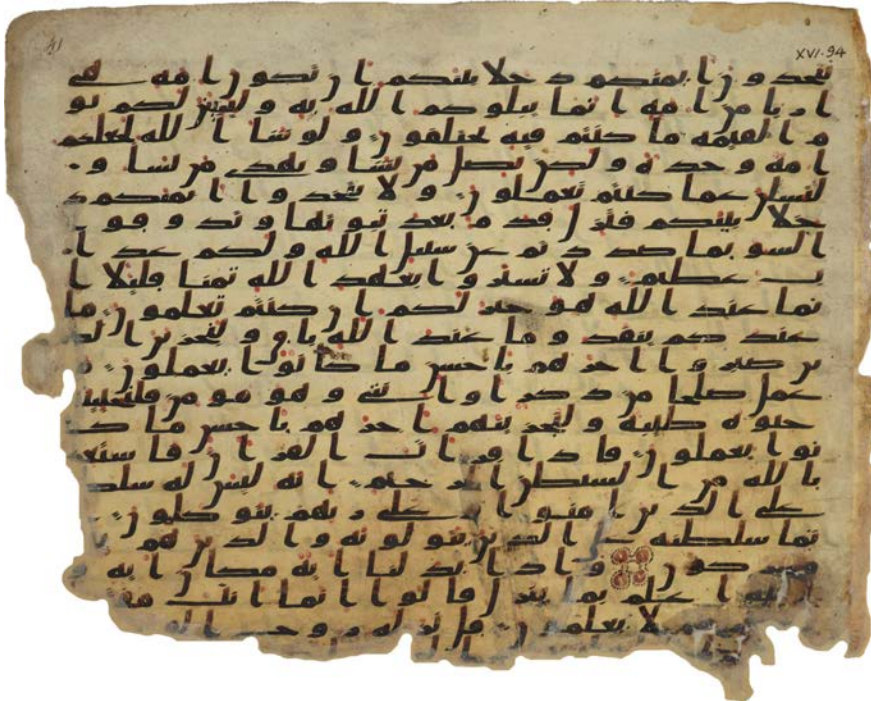 XVI-94
تتخذون ايمنكم دخلا بينكم ان تكون امة هي
ار بى من امة انما يبلوكم الله به وليبينن لكم يو
م القيمة ما كنتم فيه تختلفون ولو شا الله لجعلكم
امة وحدة ولكن يضل من يشا ويهدي من يشا و
لتسلن عما كنتم تعملون ولا تتخذوا ايمنكم د
خلا بينكم فتزل قدم بعد ثبوتها وتذوقوا
السو بما صددتم عن سبيل الله ولكم عذا
ب عظيم ولا تشتروا بعهد الله ثمنا قليلا ا
نما عند الله هو خير لكم ان كنتم تعلمون ما
عندكم ينفد وما عند الله باق ولنجزين الذ
ين صبروا اجرهم باحسن ما كانوا يعملون
عمل صلحا من ذكر او انثى وهو مومن فلنحيينه
حيوة طيبة ولنجزينهم اجرهم باحسن ما كا
نوا يعملون فاذا قرات القران فاستعذ
بالله من الشيطن الرجيم انه ليس له سلطن
على الذين امنوا وعلى ربهم يتوكلون ا
نما سلطنه على الذين يتولونه والذين هم
مشركون واذا بدلنا اية مكان اية و
الله اعلم بما ينزل قالوا انما انت مفتر
لا يعلمون قل نزله روح